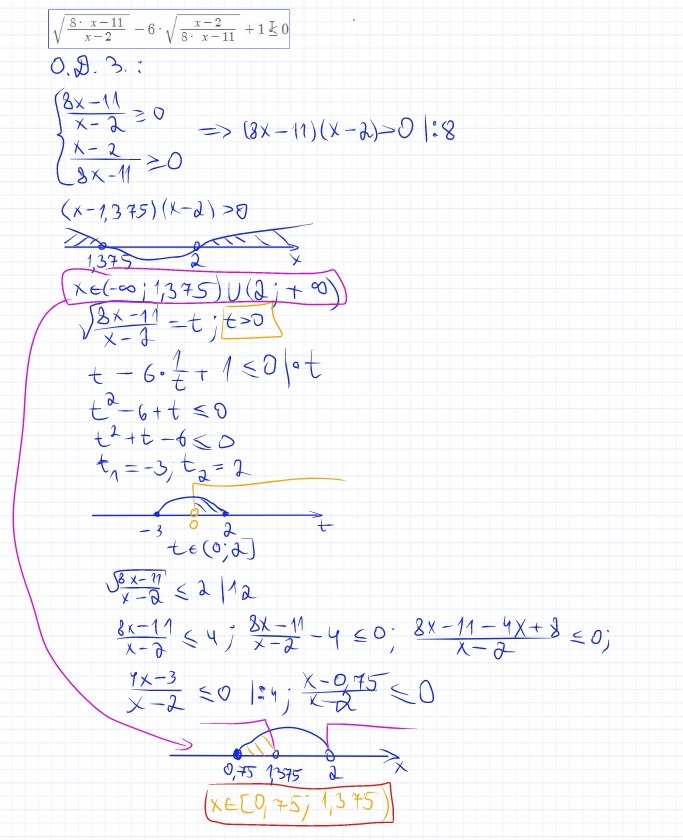 √((8 · x−11)/(x−2)) − 6 · √((x−2)/(8 · x−11)) + 1 ≤ 0
О.Д.З.:
{ (8x−11)/(x−2) ≥ 0
(x−2)/(8x−11) ≥ 0 => (8x−11)(x−2)>0 |:8
(x−1,375)(x−2)>0
1,375 2 x
x∈(−∞; 1,375)∪(2; +∞)
√((8x−11)/(x−2)) = t; t>0
t − 6·1/t + 1 ≤ 0 |·t
t²−6+t ≤ 0
t²+t−6 ≤ 0
t₁=−3, t₂=2
−3 0 2 t
t∈(0;2]
√((8x−11)/(x−2)) ≤ 2 |^2
(8x−11)/(x−2) ≤ 4; (8x−11)/(x−2) − 4 ≤ 0; (8x−11−4x+8)/(x−2) ≤ 0;
(4x−3)/(x−2) ≤ 0 |:4; (x−0,75)/(x−2) ≤ 0
0,75 1,375 2 x
x∈[0,75; 1,375)